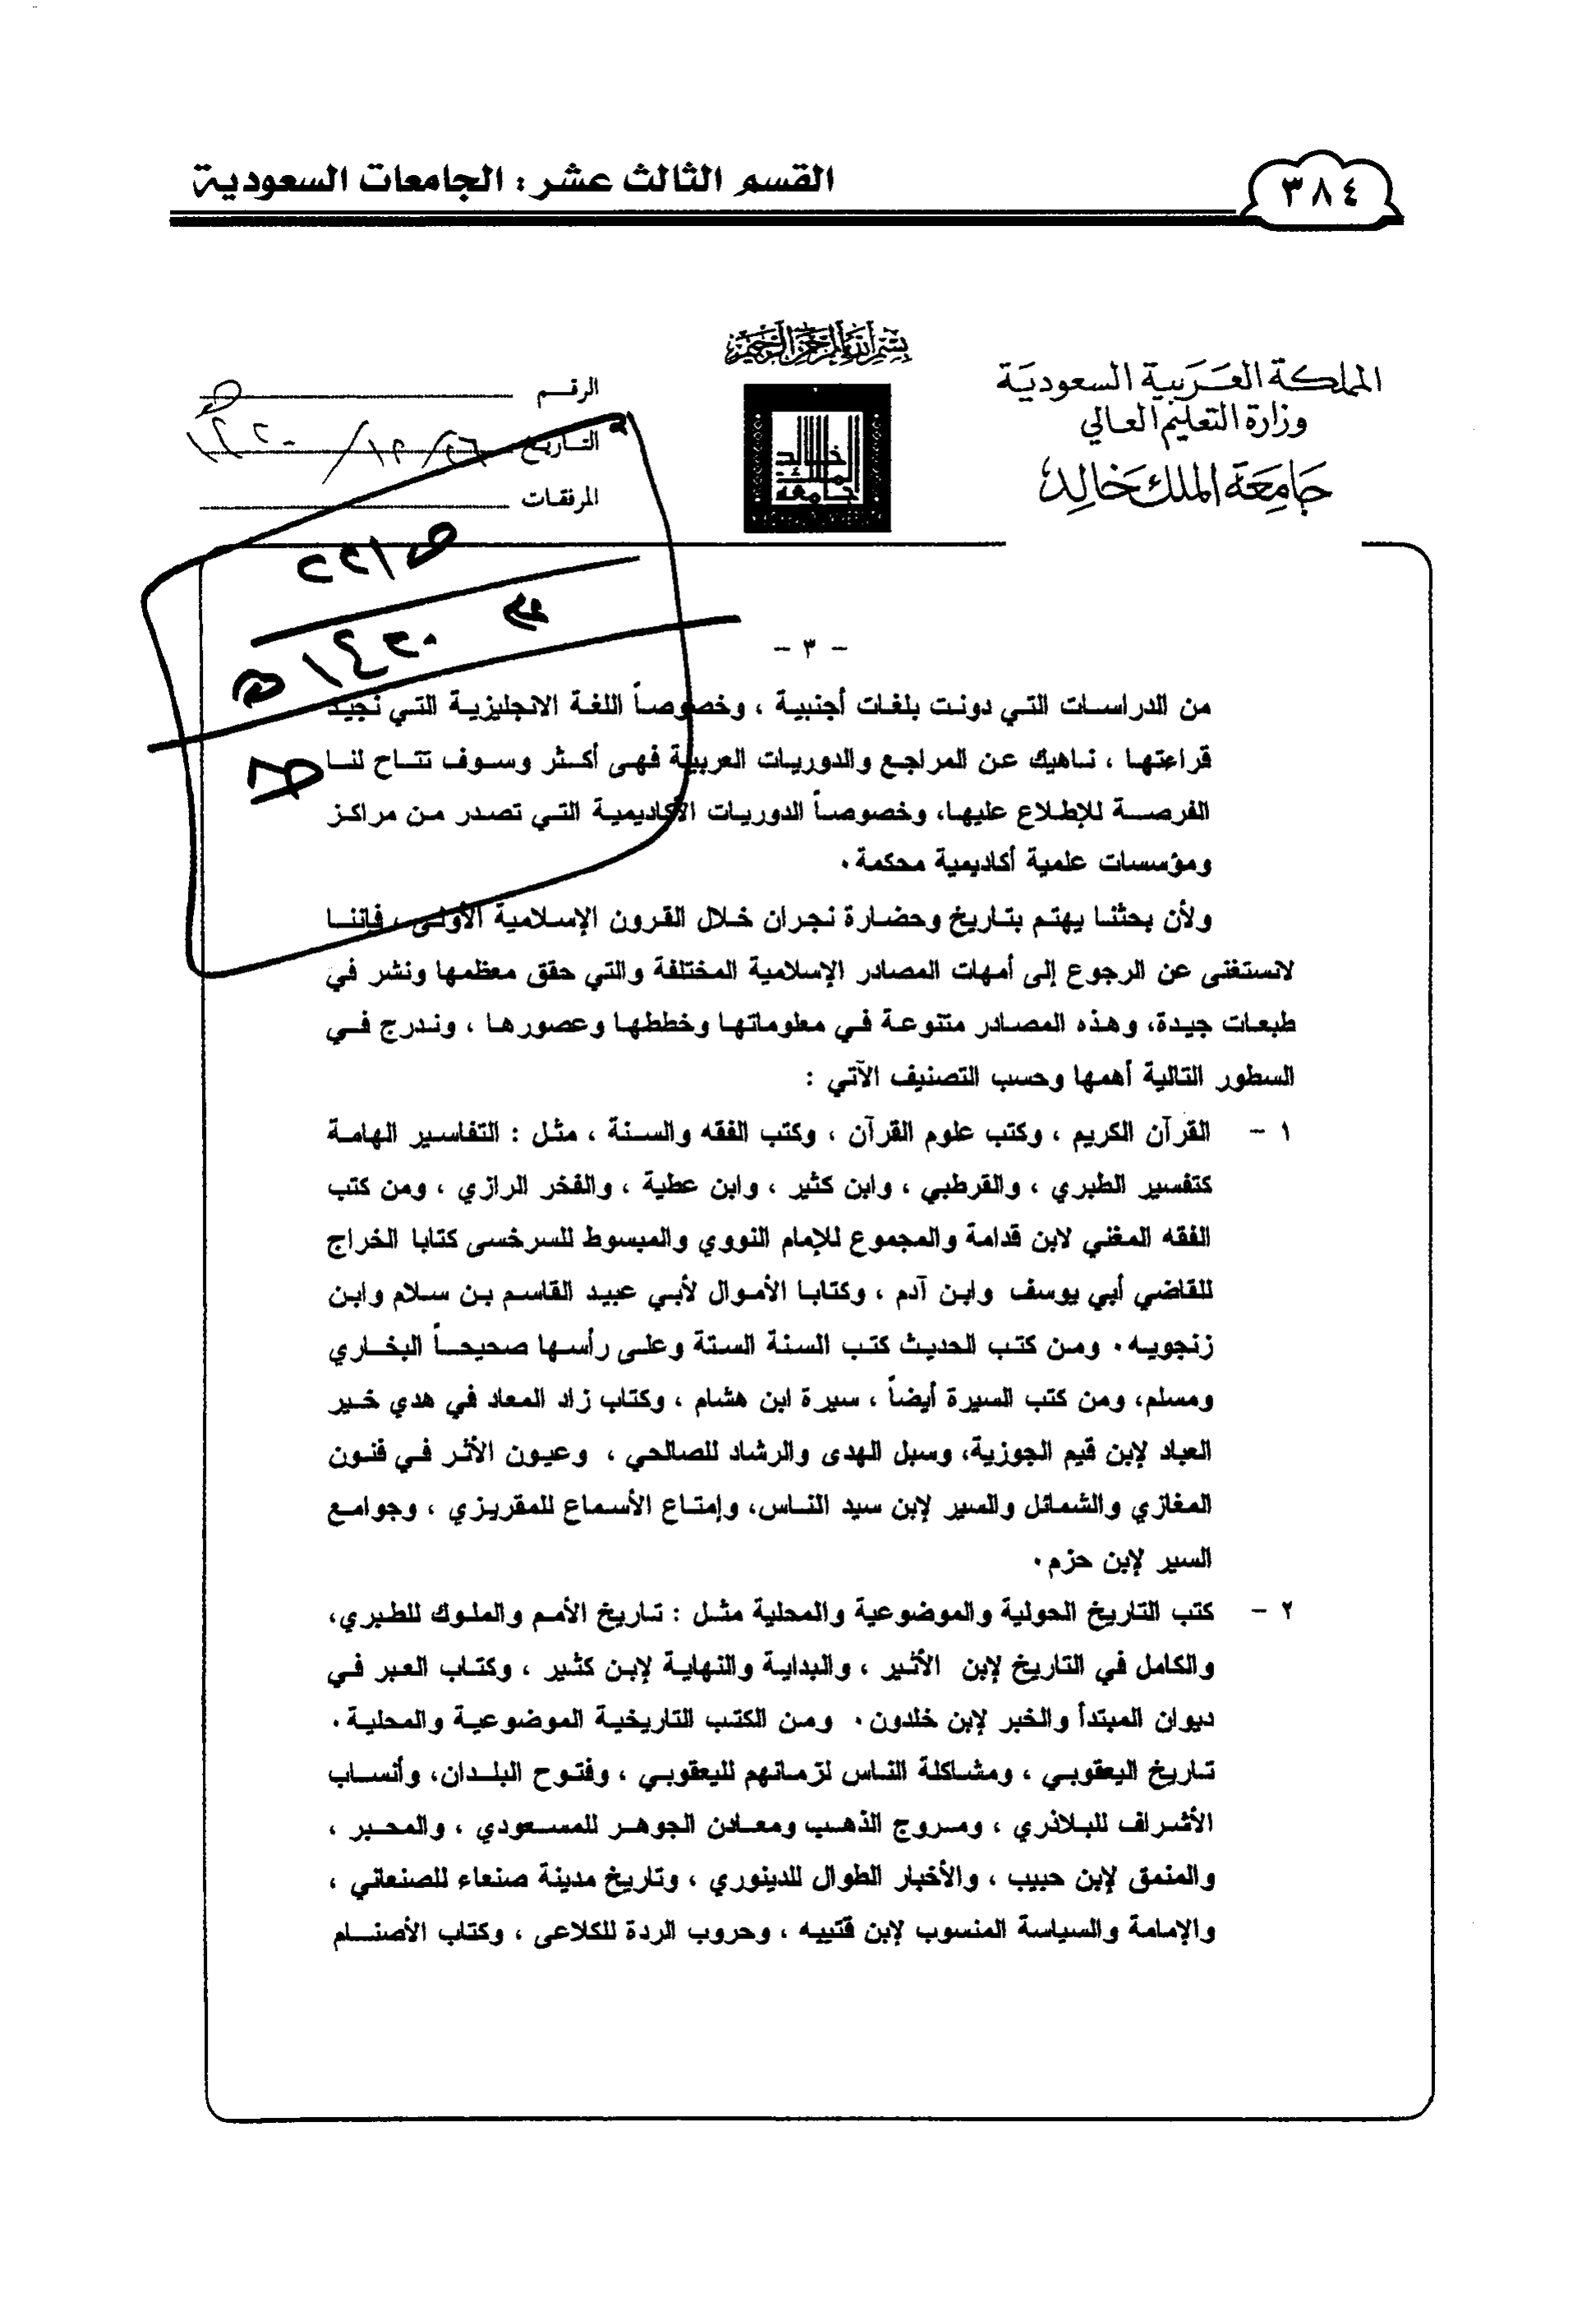 القسم الثالث عشر : الجامعات السعودية
٣٨٤
بسم الله الرحمن الرحيم
المملكة العربية السعودية
وزارة التعليم العالي
جامعة الملك خالد
جامعة الملك خالد
الرقم
التاريخ
المرفقات
- ٣ -
من الدراسات التي دونت بلغات أجنبية ، وخصوصاً اللغة الانجليزية التي نجيد
قراءتها ، ناهيك عن المراجع والدوريات العربية فهى أكثر وسوف تتاح لنا
الفرصة للإطلاع عليها، وخصوصاً الدوريات الأكاديمية التي تصدر من مراكز
ومؤسسات علمية أكاديمية محكمة .
ولأن بحثنا يهتم بتاريخ وحضارة نجران خلال القرون الإسلامية الأولى ، فإننا
لانستغنى عن الرجوع إلى أمهات المصادر الإسلامية المختلفة والتي حقق معظمها ونشر في
طبعات جيدة، وهذه المصادر متنوعة في معلوماتها وخططها وعصورها ، وندرج في
السطور التالية أهمها وحسب التصنيف الآتي :
١ - القرآن الكريم ، وكتب علوم القرآن ، وكتب الفقه والسنة ، مثل : التفاسير الهامة
كتفسير الطبري ، والقرطبي ، وابن كثير ، وابن عطية ، والفخر الرازي ، ومن كتب
الفقه المغني لابن قدامة والمجموع للإمام النووي والمبسوط للسرخسى كتابا الخراج
للقاضي أبي يوسف وابن آدم ، وكتابا الأموال لأبي عبيد القاسم بن سلام وابن
زنجويه . ومن كتب الحديث كتب السنة الستة وعلى رأسها صحيحاً البخاري
ومسلم، ومن كتب السيرة أيضاً ، سيرة ابن هشام ، وكتاب زاد المعاد في هدي خير
العباد لإبن قيم الجوزية، وسبل الهدى والرشاد للصالحي ، وعيون الأثر في فنون
المغازي والشمائل والسير لإبن سيد الناس، وإمتاع الأسماع للمقريزي ، وجوامع
السير لإبن حزم .
٢ - كتب التاريخ الحولية والموضوعية والمحلية مثل : تاريخ الأمم والملوك للطبري،
والكامل في التاريخ لإبن الأثير ، والبداية والنهاية لإبن كثير ، وكتاب العبر في
ديوان المبتدأ والخبر لإبن خلدون . ومن الكتب التاريخية الموضوعية والمحلية .
تاريخ اليعقوبي ، ومشاكلة الناس لزمانهم لليعقوبي ، وفتوح البلدان، وأنساب
الأشراف للبلاذري ، ومروج الذهب ومعادن الجوهر للمسعودي ، والمحبر ،
والمنمق لإبن حبيب ، والأخبار الطوال للدينوري ، وتاريخ مدينة صنعاء للصنعاني ،
والإمامة والسياسة المنسوب لإبن قتيبه ، وحروب الردة للكلاعى ، وكتاب الأصنام